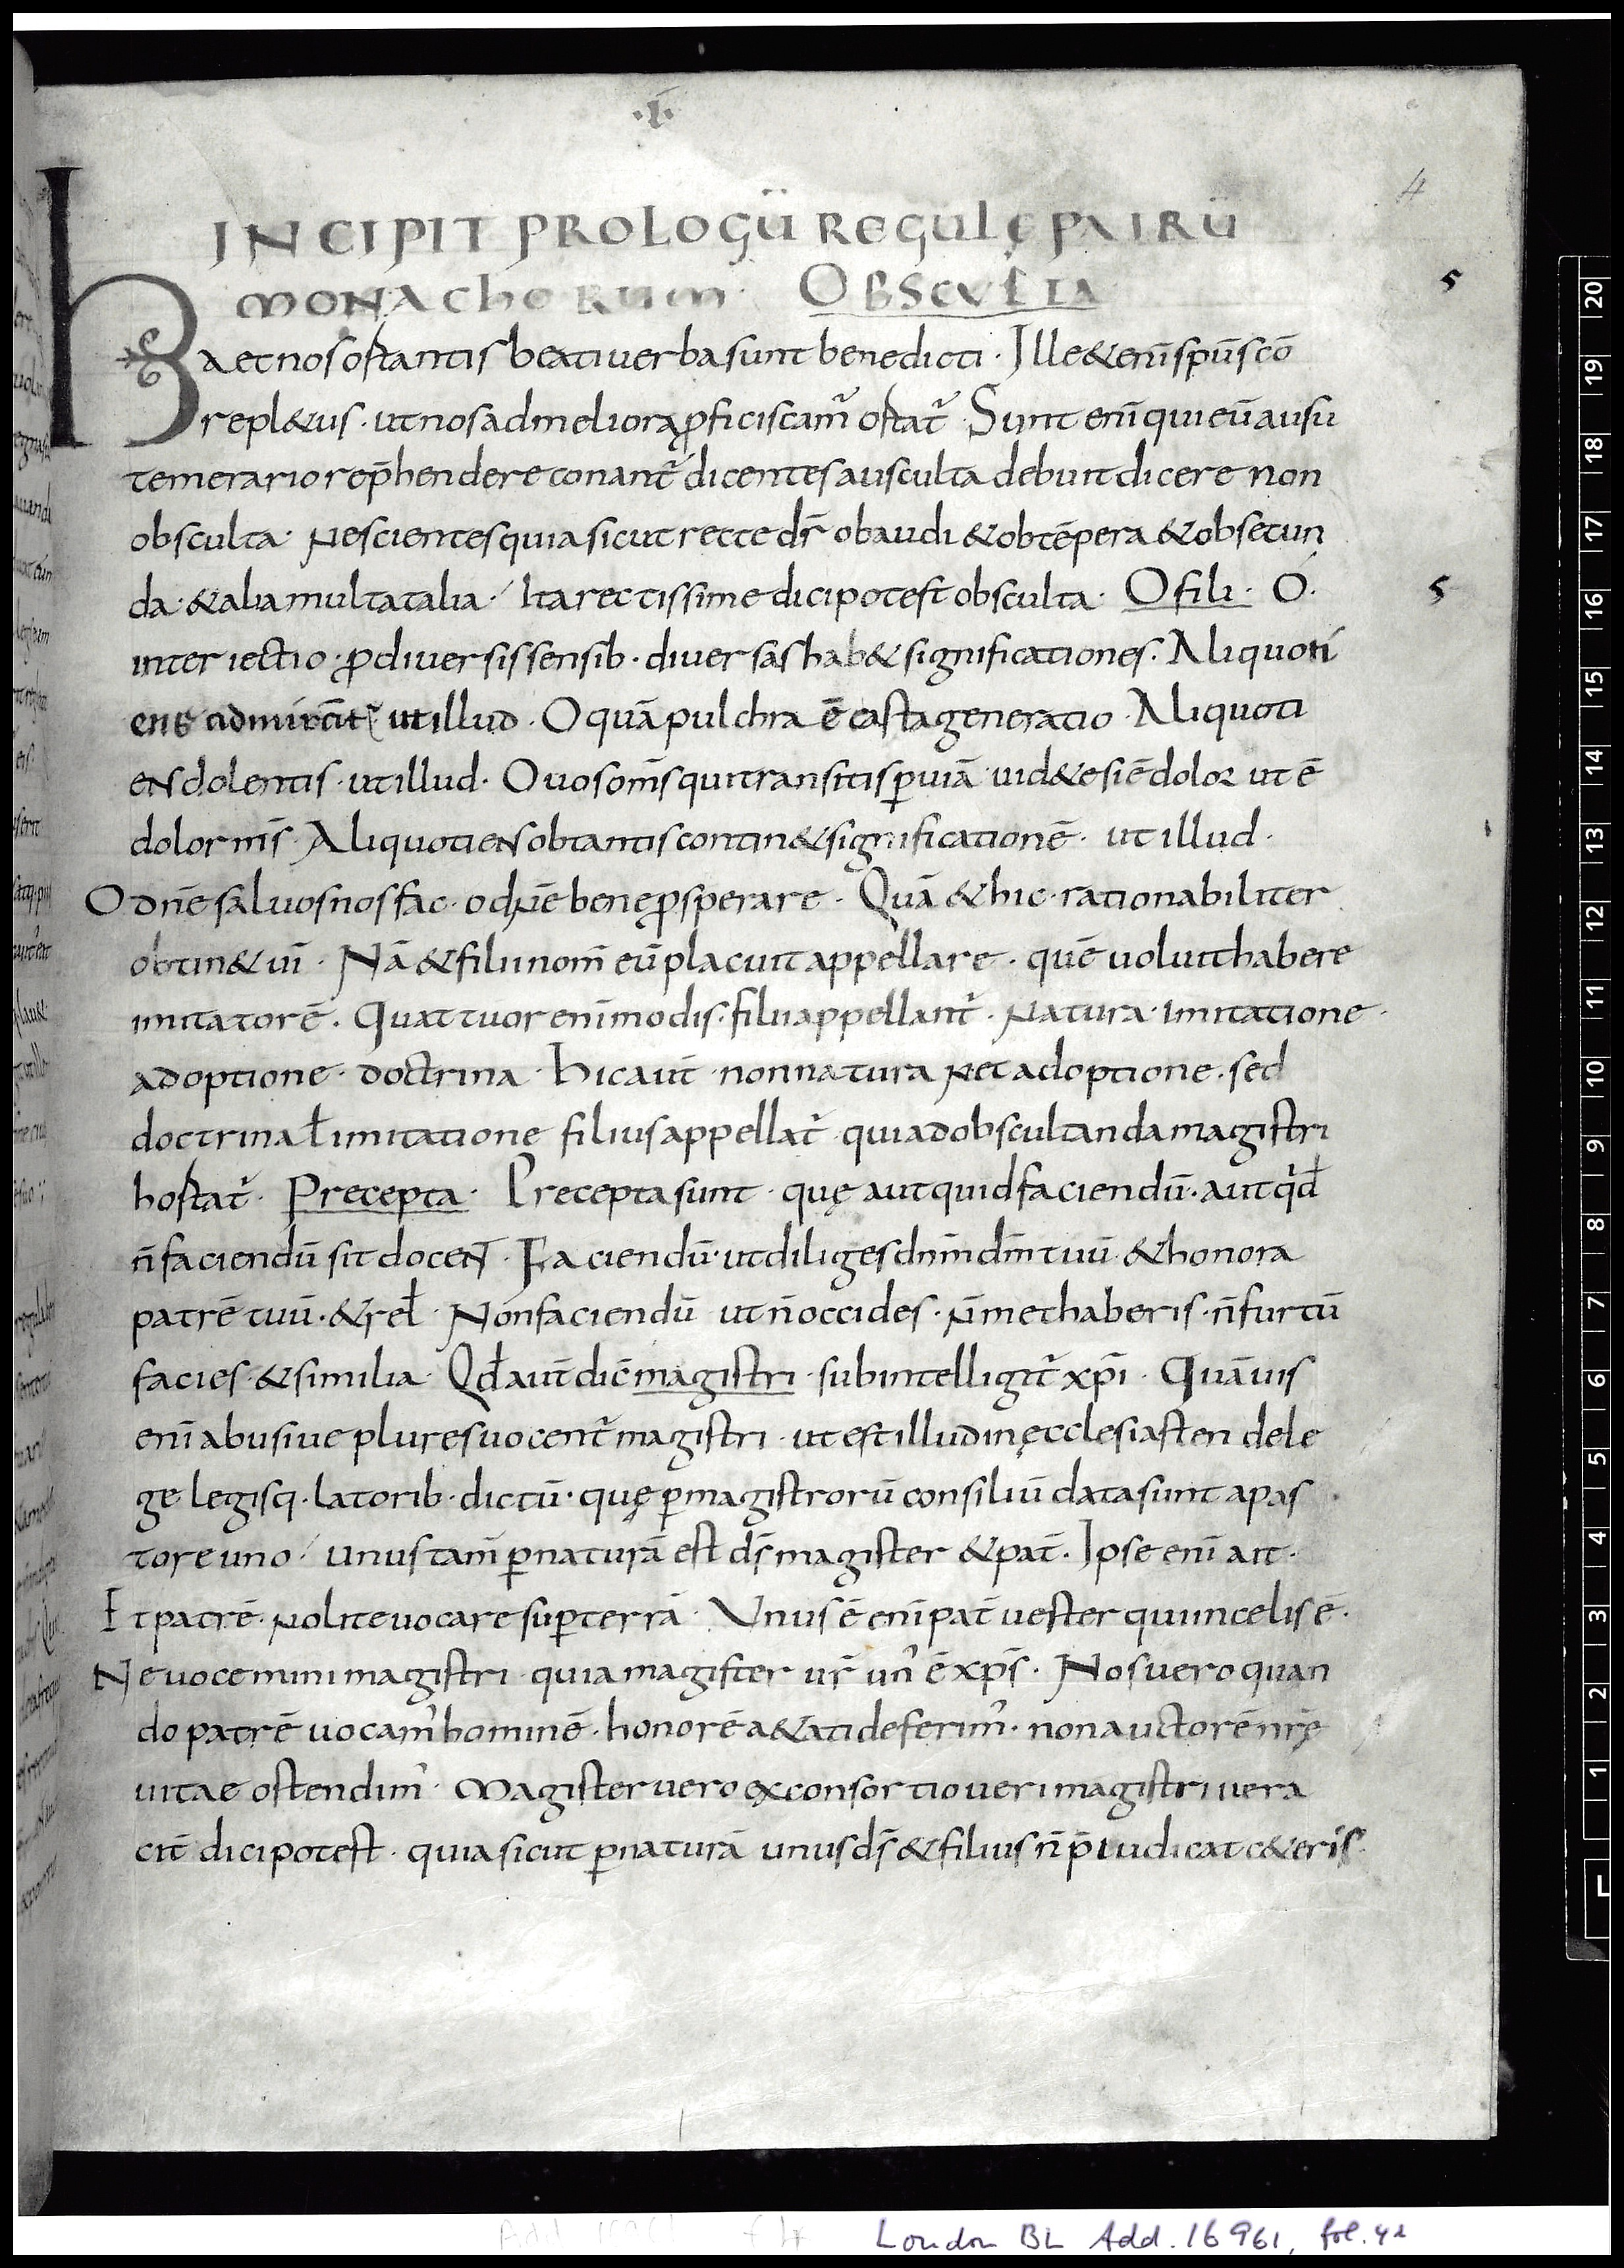 ·I·
4
INCIPIT PROLOGŪ REGULĘ PATRŪ
MONAChORUM· OBSCVLTA
5
hBaec nos ostantis beati uerba sunt benedicti · Ille & enī spū sco
repl&us · ut nos ad meliora ꝓficiscam᷑ ostat᷑ · Sunt enī qui eū ausu
temerario rep̄hendere conant᷑ dicentes ausculta debuit dicere non
obsculta · Nescientes quia sicut recte dr̄ obaudi & obtēpera & obsecun
da · & alia multa talia · Ita rectissime dici potest obsculta · O fili · O ·
5
interiectio · ꝓ diuersis sensib · diuersas hab& significationes · Aliquoti
ens admirant᷑ ut illud · O quā pulchra ē casta generatio · Aliquoti
ens dolentis · ut illud · O uos om̄s qui transitis ꝑ uiā uid&e si ē dolor ut ē
dolor m̄s · Aliquotiens obtantis contin& significationē · ut illud ·
O dn̄e saluos nos fac · o dn̄e bene ꝓsperare · Quā & hic · rationabiliter
obtin& ui · Nā & filii nom̄ eū placuit appellare · quē uoluit habere
imitatorē · Quattuor enī modis · filii appellant᷑ · Natura · Imitatione ·
adoptione · doctrina · hic aut̄ · non natura nec adoptione · sed
doctrina ł imitatione filius appellat᷑ · qui ad obscultanda magistri
hostat᷑ · Precepta · Precepta sunt · quę aut quid faciendū · aut qd̄
n̄ faciendū sit docent · Faciendū · ut diliges dn̄m dm̄ tuū · & honora
patrē tuū · & rel̄ · Non faciendū ut n̄ occides · n̄ mechaberis · n̄ furtū
facies · & similia · Qd̄ aut̄ dic̄ magistri · subintelligit᷑ xp̄i · Quāuis
enī abusiue plures uocent᷑ magistri · ut est illud in ęcclesiasten de le
ge · legisq · latorib · dictū · quę ꝑ magistrorū consiliū data sunt a pas
tore uno · Unus tam̄ ꝑ naturā est ds̄ magister & pat̄ · Ipse enī ait ·
Et patrē · nolite uocare suꝑ terrā · Vnus ē enī pat̄ uester qui in celis ē ·
Ne uocemini magistri · quia magister ur̄ un᷒ ē xp̄s · Nos uero quan
do patrē uocam᷒ hominē · honorē a&ati deferim᷒ · non auctorē nr̄ę
uitae ostendim᷒ · Magister uero ex consortio ueri magistri uera
cit̄ dici potest · quia sicut ꝑ naturā unus ds̄ & filius n̄ p̄iudicat c&eris ·
London BL Add. 16961, fol. 4r
20
19
18
17
16
15
14
13
12
11
10
9
8
7
6
5
4
3
2
1